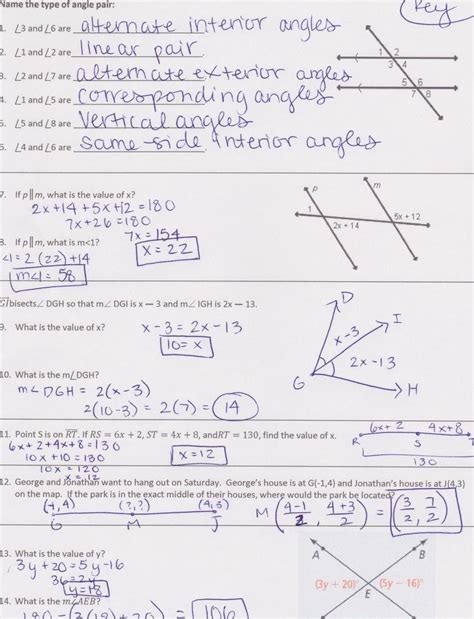 Name the type of angle pair: Key
1. ∠3 and ∠6 are alternate interior angles
2. ∠1 and ∠2 are linear pair.
3. ∠2 and ∠7 are alternate exterior angles
4. ∠1 and ∠5 are corresponding angles
5. ∠5 and ∠8 are vertical angles
6. ∠4 and ∠6 are same-side interior angles
1 2
3 4
5 6
7 8
7. If p∥m, what is the value of x?
2x+14 + 5x+12 = 180
7x + 26 = 180
7x = 154
x = 22
p
m
1
2x + 14
5x + 12
8. If p∥m, what is m<1?
<1 = 2(22)+14
m<1 = 58
GI bisects ∠ DGH so that m∠ DGI is x — 3 and m∠ IGH is 2x — 13.
9. What is the value of x?
x - 3 = 2x - 13
10 = x
D
I
x-3
2x-13
G
H
10. What is the m∠DGH?
m∠DGH = 2(x-3)
2(10-3) = 2(7) = 14
11. Point S is on RT. If RS = 6x + 2, ST = 4x + 8, and RT = 130, find the value of x.
6x+2+4x+8 = 130
10x + 10 = 130
10x = 120
x = 12
x = 12
6x+2 4x+8
R S T
130
12. George and Jonathan want to hang out on Saturday. George's house is at G(-1,4) and Jonathan's house is at J(4,3)
on the map. If the park is in the exact middle of their houses, where would the park be located?
(-1,4) (?,?) (4,3)
G M J
M (4-1/2, 4+3/2) = (3/2, 7/2)
13. What is the value of y?
3y + 20 = 5y - 16
36 = 2y
y = 18
A
B
(3y + 20)°
(5y − 16)°
E
14. What is the m∠AEB?
180 - (3(18) + 20) = 106